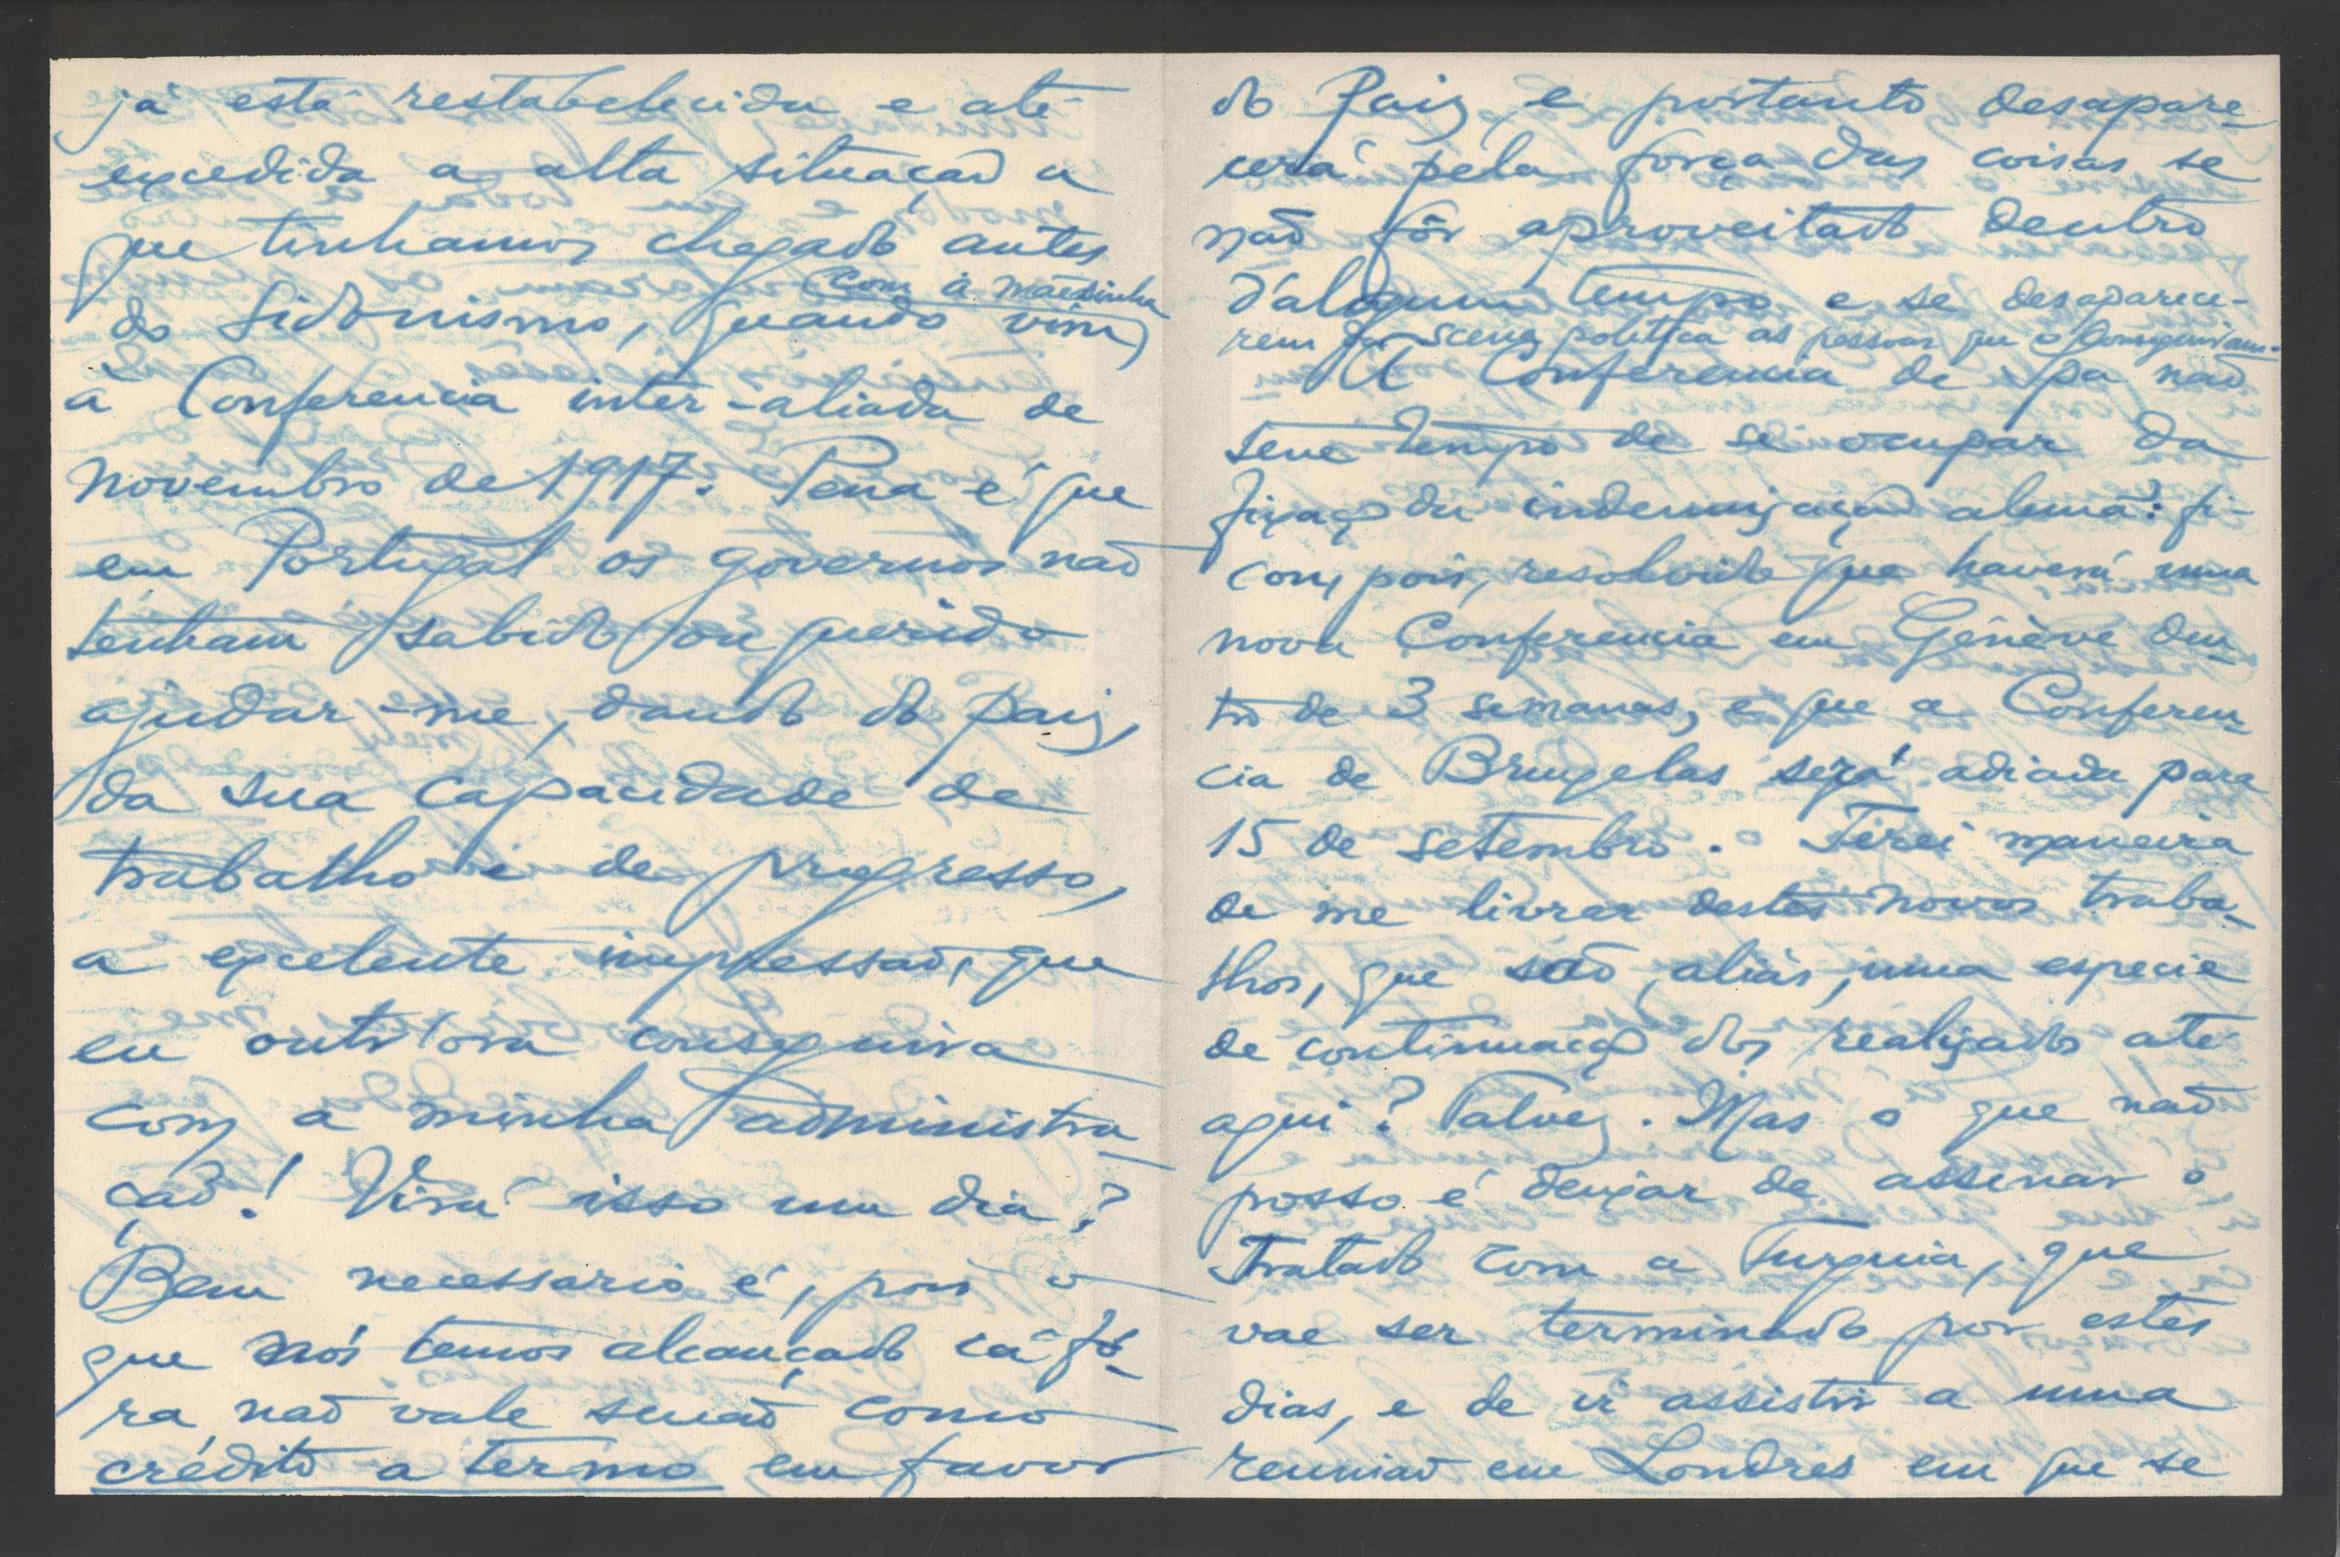 já está restabelecida e até
excedida a alta situação a
que tinhamos chegado antes
(com a mãesinha
do Sidonismo, quando vim)
á Conferencia inter-aliada de
Novembro de 1917. Pena é que
em Portugal os governos não
tenham sabido ou querido
ajudar-me, dando do paiz,
da sua capacidade de
trabalho e de progresso,
a excelente impressão, que
eu outr'ora conseguira
com a minha administra-
ção! Virá isso um dia?
Bem necessario é, pois o
que nós temos alcançado cá fó-
ra, não vale senão como
crédito a termo em favor
do Paiz, e portanto desapare-
cerá pela força das coisas se
não fôr aproveitado dentro
d'algum tempo e se desaparece-
rem da scena politica as pessoas que o conseguiram.
A Conferencia de Spa não
teve tempo de se ocupar da
fixação da indemnização alemã: fi-
cou, pois, resolvido que haverá uma
nova Conferencia em Génève den-
tro de 3 semanas, e que a Conferen-
cia de Bruxelas será adiada para
15 de setembro. Terei maneira
de me livrar destes novos traba-
lhos, que são, aliás, uma especie
de continuação dos realizados até
aqui? Talvez. Mas o que não
posso é deixar de assinar o
Tratado com a Turquia, que
vae ser terminado por estes
dias, e de ir assistir a uma
reunião em Londres em que se